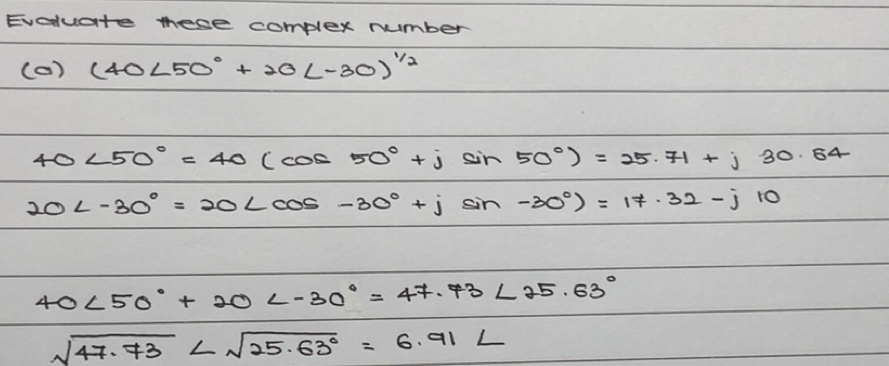 Evaluate these complex number
(a) (40∠50° + 20∠-30)^1/2
40∠50° = 40 (cos 50° + j sin 50°) = 25.71 + j 30.64
20∠-30° = 20∠cos -30° + j sin -30°) = 17.32 - j 10
40∠50° + 20∠-30° = 47.73∠25.63°
√47.73 ∠√25.63° = 6.91∠